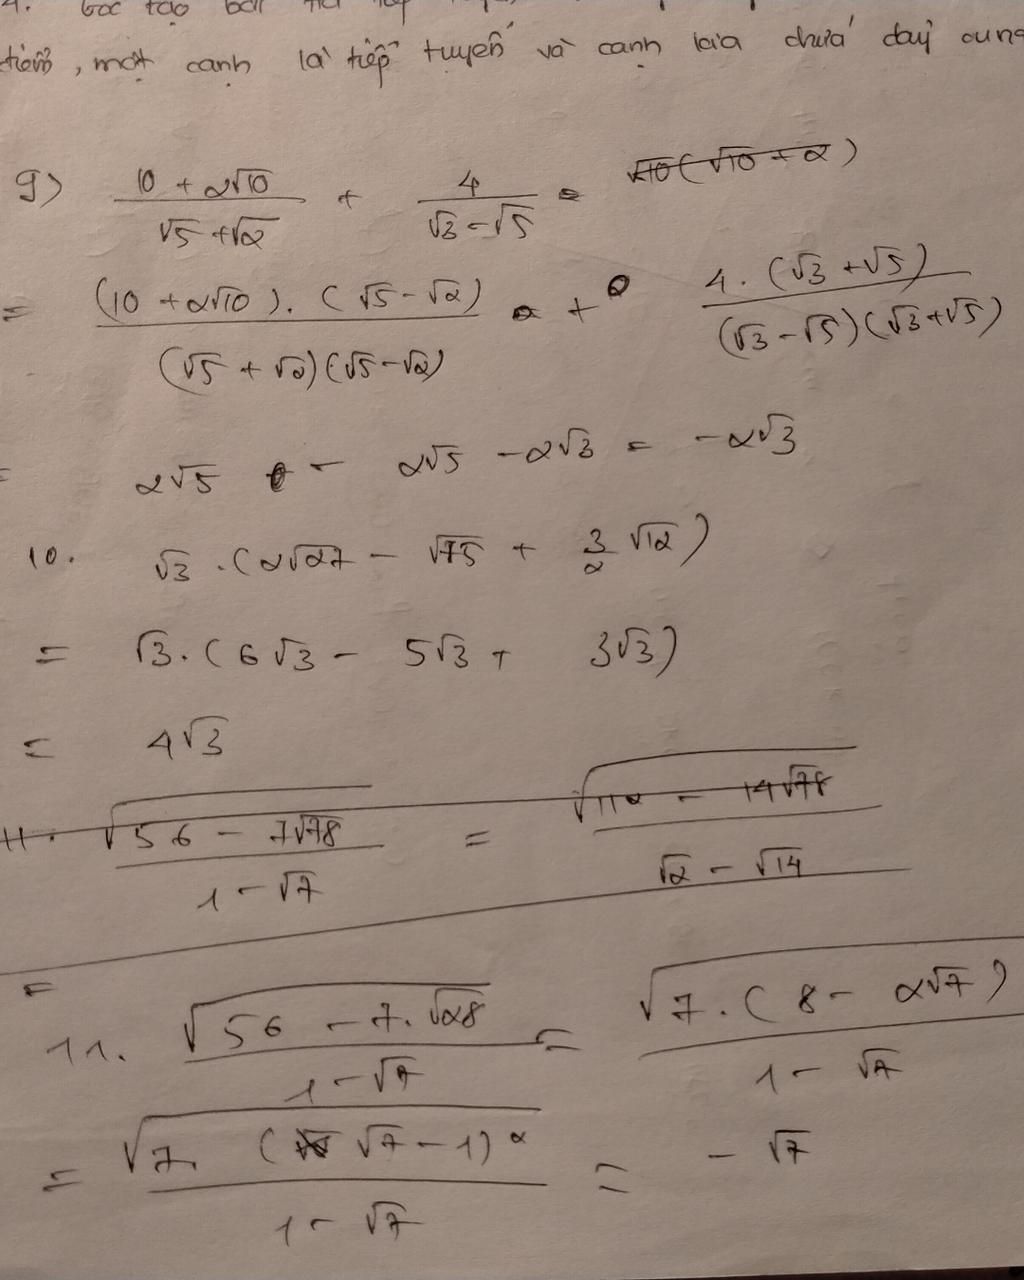 4. Góc tạo bởi tia tiếp
điểm, một cạnh là tiếp tuyến và cạnh kia chứa dây cung
9) (10 + 2√10)/(√5 + √2) + 4/(√3 - √5) = √10(√10 + 2)
= ((10 + 2√10).(√5 - √2))/((√5 + √2)(√5 - √2)) + (4.(√3 + √5))/((√3 - √5)(√3 + √5))
= 2√5 - 2√5 - 2√3 = -2√3
10. √3.(2√27 - √75 + 3/2 √12)
= √3.(6√3 - 5√3 + 3√3)
= 4√3
11. √(56 - 7√78)/(1 - √7) = √(112 - 14√78)/(√2 - √14)
=
11. √(56 - 7.√28)/(1 - √7) = √(7.(8 - 2√7))/(1 - √7)
= √(7.(√7 - 1)²)/(1 - √7) = -√7